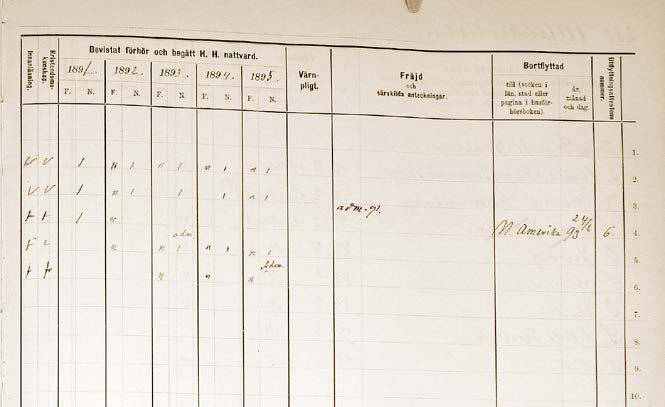 Innanläsning.
Kristendoms-
kunskap.
Bevistat förhör och begått H. H. nattvard.
1891. 1892. 1893. 1894. 1895.
F. N. F. N. F. N. F. N. F. N.
Värn-
pligt.
Fräjd
och
särskilda anteckningar.
Bortflyttad
till (socken i
län, stad eller
pagina i husför-
hörsboken).
år,
månad
och dag.
Utflyttningsattestens
nummer.
1.
v v 1 n 1 n 1 n 1 n 1
2.
v v 1 n 1 1 1 n 1
3.
+ + 1 n
adm. gl.
N. Amerika 93 24/2 6
4.
adm
n n 1 n 1 n 1
5.
Adm.
+ + n n n
6.
7.
8.
9.
10.